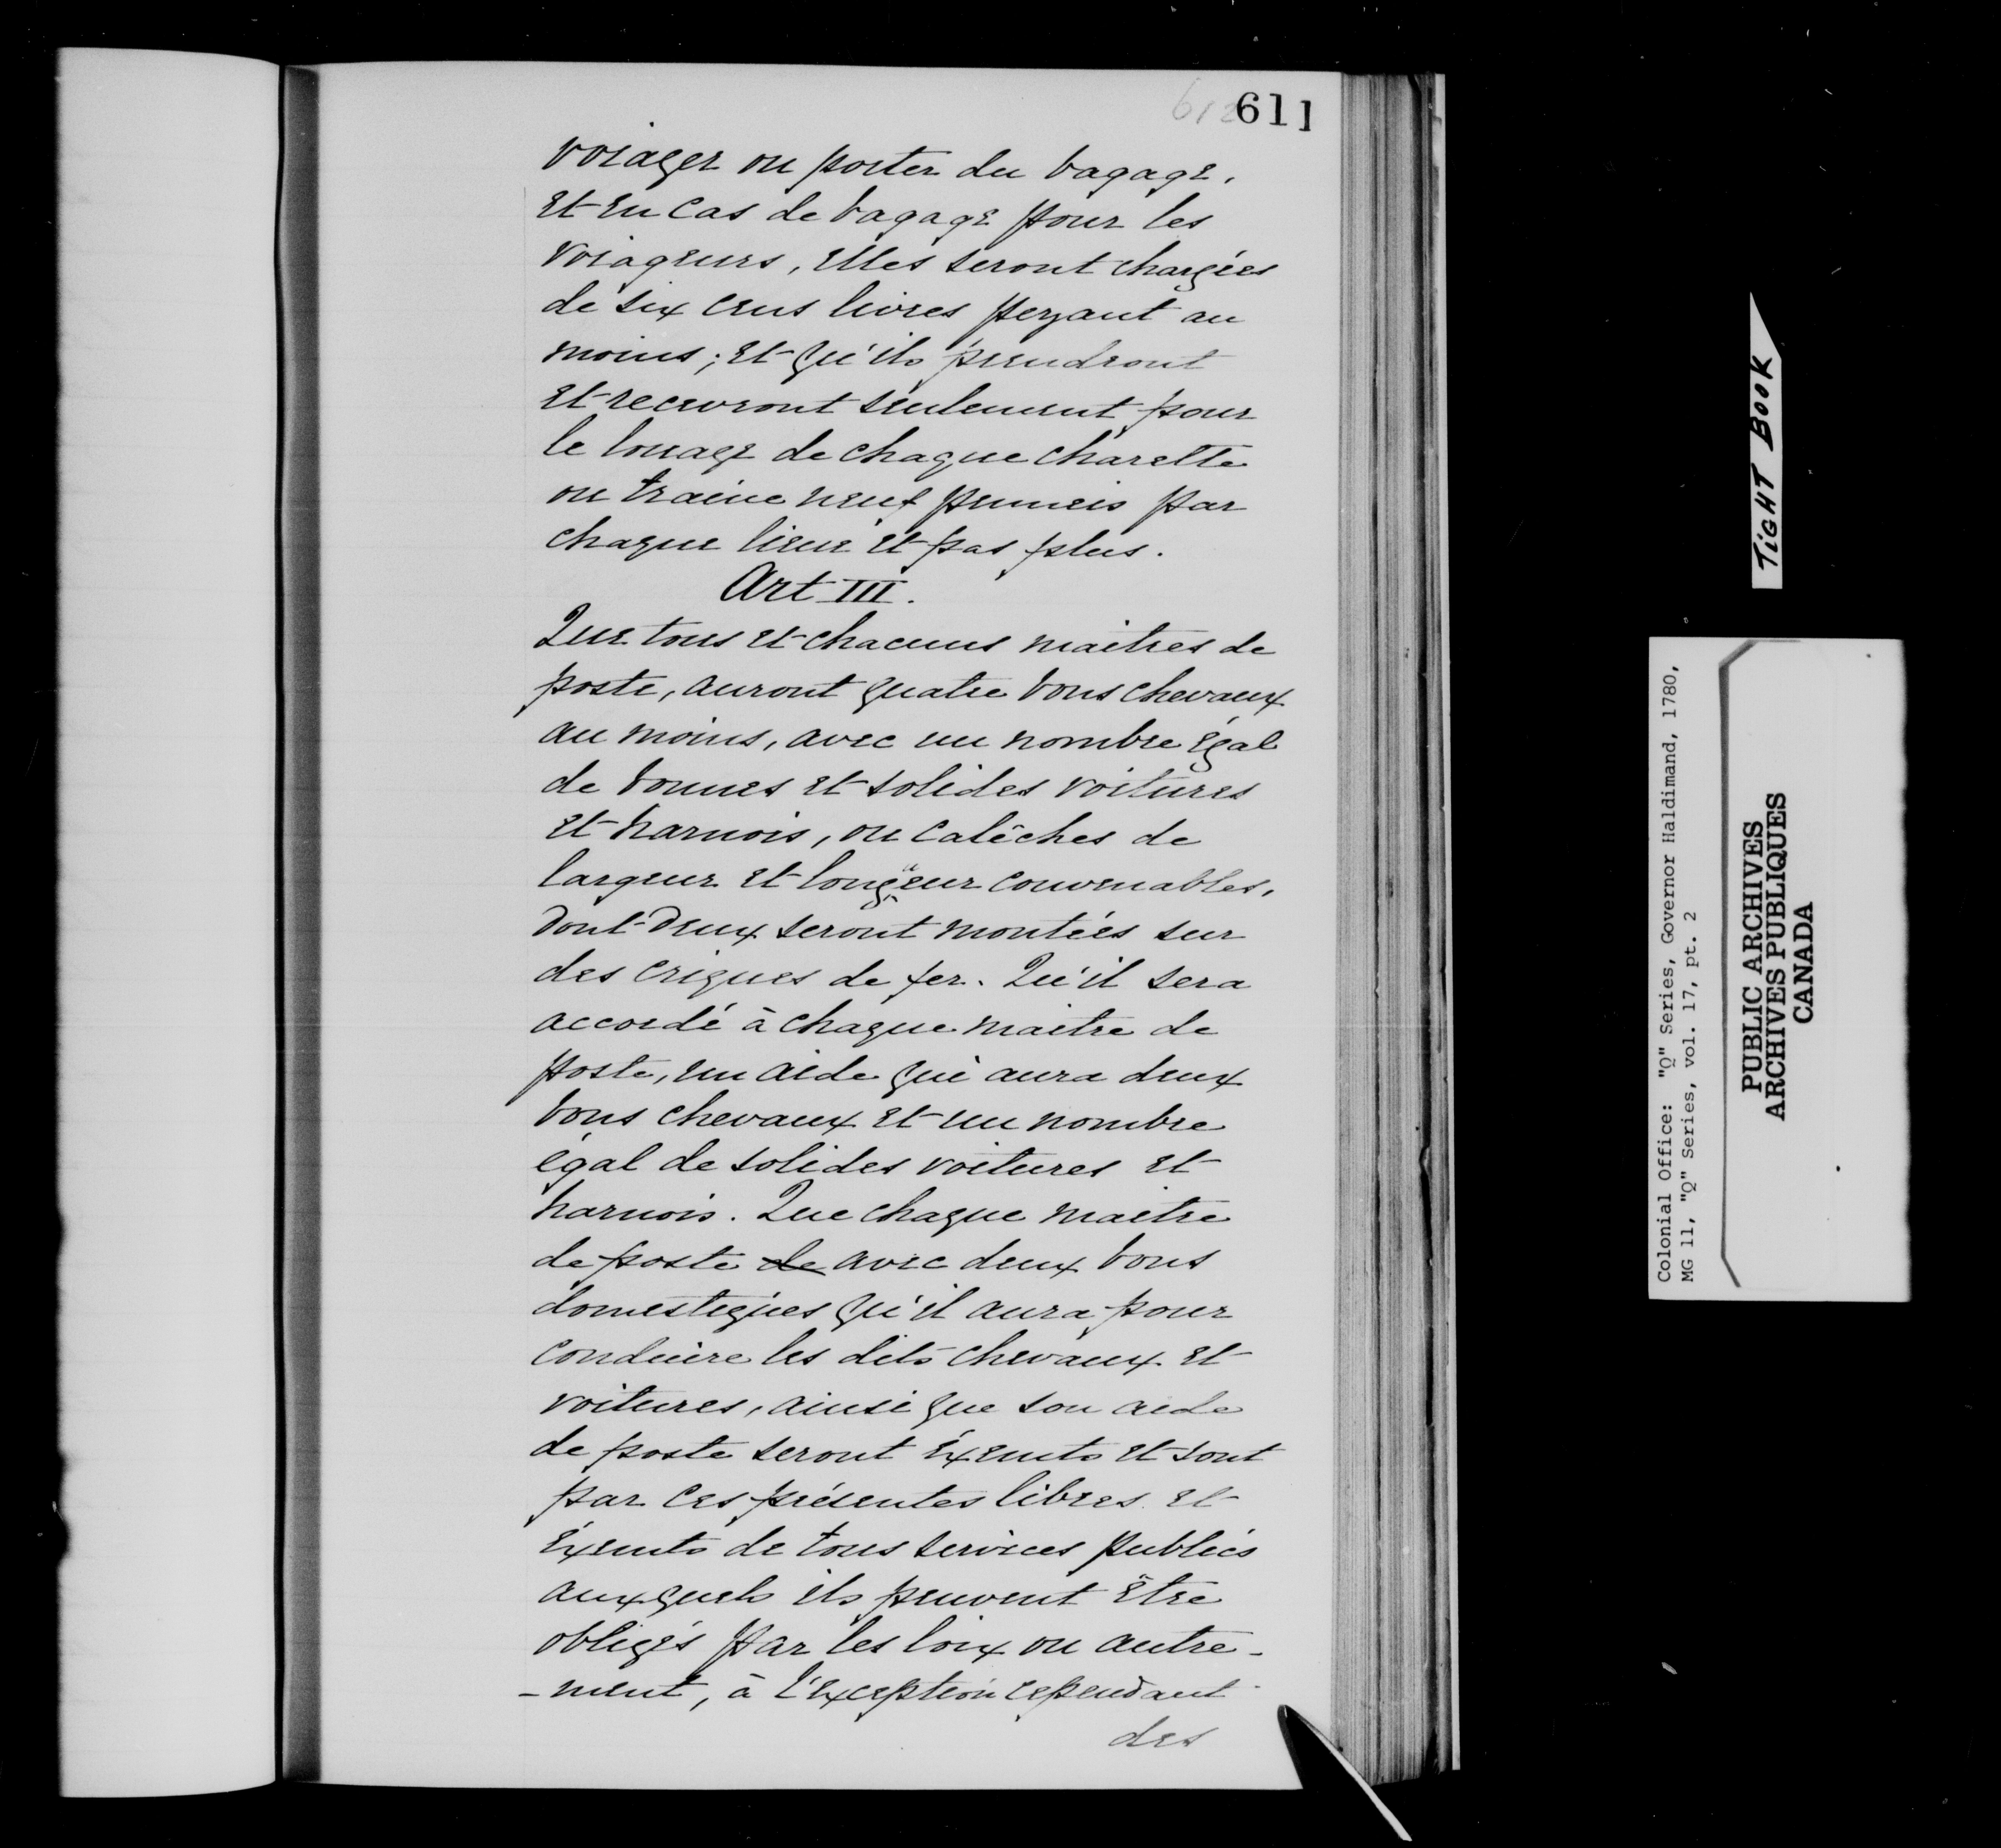 612 611
voiager ou porter du bagage.
et en cas de bagage pour les
voiageurs, elles seront chargées
de six cens livres pezant au
moins; et qu'ils prendront
et recevront seulement pour
le louage de chaque charette
ou traine neuf penneis par
chaque lieue et pas plus.
Art III.
Que tous et chacuns maitres de
poste, auront quatre bons chevaux
au moins, avec un nombre égal
de bonnes et solides voitures
et harnois, ou calêches de
largeur et longueur convenables,
dont deux seront montées sur
des criques de fer. Qu'il sera
accordé à chaque maitre de
poste, un aide qui aura deux
bons chevaux et un nombre
égal de solides voitures et
harnois. Que chaque maitre
de poste de avec deux bons
domestiques qu'il aura pour
conduire les dits chevaux et
voitures, ainsi que son aide
de poste seront éxemts et sont
par ces présentes libres et
éxemts de tous services publics
auxquels ils peuvent être
obligés par les loix ou autre-
-ment, à l'exception cependant
des
TIGHT BOOK
Colonial Office: "Q" Series, Governor Haldimand, 1780,
MG 11, "Q" Series, vol. 17, pt. 2
PUBLIC ARCHIVES
ARCHIVES PUBLIQUES
CANADA